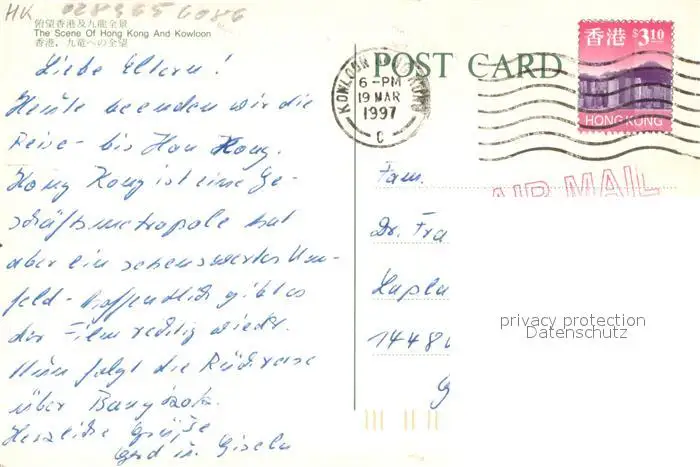 HK 028365 6086
俯望香港及九龍全景
The Scene Of Hong Kong And Kowloon
香港、九竜への全望
Liebe Eltern!
Heute beenden wir die
Reise - bis Hon Kong.
Hong Kong ist eine Ge-
schäftsmetropole hat
aber ein sehenswertes Um-
feld - hoffentlich gibt es
der Film richtig wieder.
Nun folgt die Rückreise
über Bangkok.
Herzliche Grüße
Gerd u. Gisela
POST CARD
KOWLOON HONG KONG
6 - PM
19 MAR
1997
C
香港 $3.10
HONG KONG
AIR MAIL
Fam.
Dr. Fra
1448
privacy protection
Datenschutz